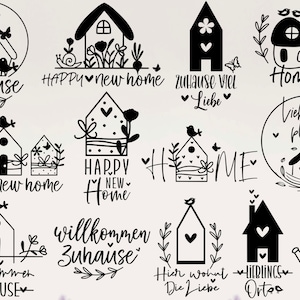 use
HAPPY new home
ZUHAUSE VIEL
Liebe
Home
new home
HAPPY
NEW
Home
HOME
willkommen
Zuhause
USE
Hier wohnt
Die Liebe
LIEBLINGS
Ort